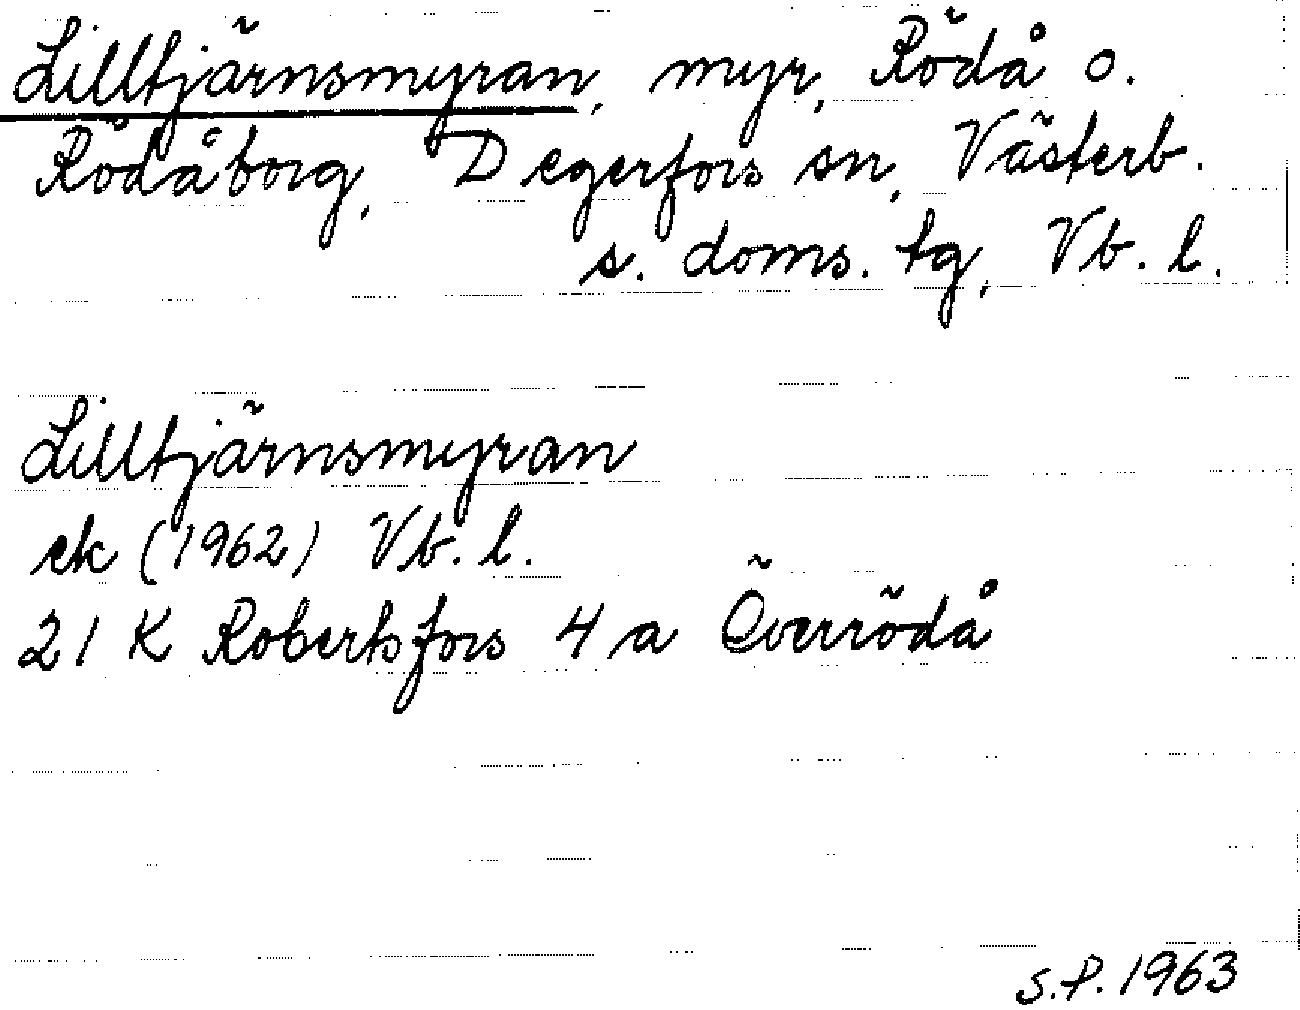 Lilltjärnsmyran, myr, Rödå o.
Rödåborg, Degerfors sn, Västerb.
s. doms. tg, Vb. l.
Lilltjärnsmyran
ek (1962) Vb. l.
21 K Robertsfors 4 a Överrödå
S.P. 1963